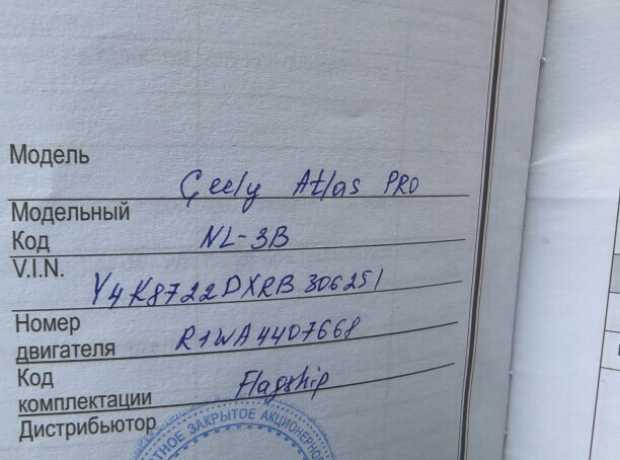 Модель
Geely Atlas PRO
Модельный
Код
NL-3B
V.I.N.
Y4K8722DXRB306251
Номер
двигателя
R1WA4407668
Код
комплектации
Flagship
Дистрибьютор
ЗАКРЫТОЕ АКЦИОНЕРНО